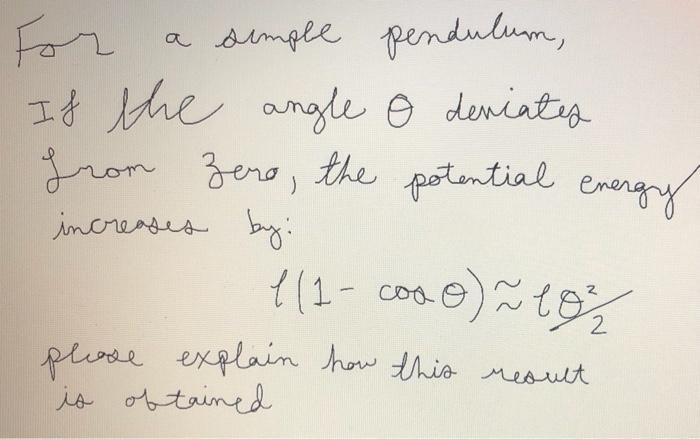 For a simple pendulum,
If the angle θ deviates
from zero, the potential energy
increases by:
l(1 - cos θ) ≈ lθ²/2
please explain how this result
is obtained